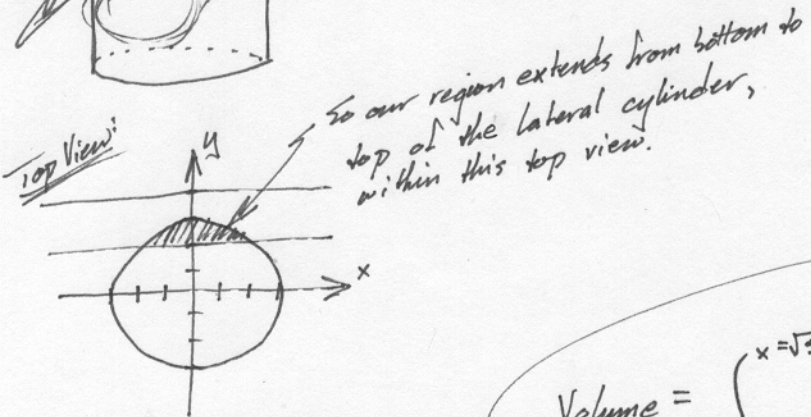 So our region extends from bottom to
top of the lateral cylinder,
within this top view.
Top View:
y
x
x = √
Volume =